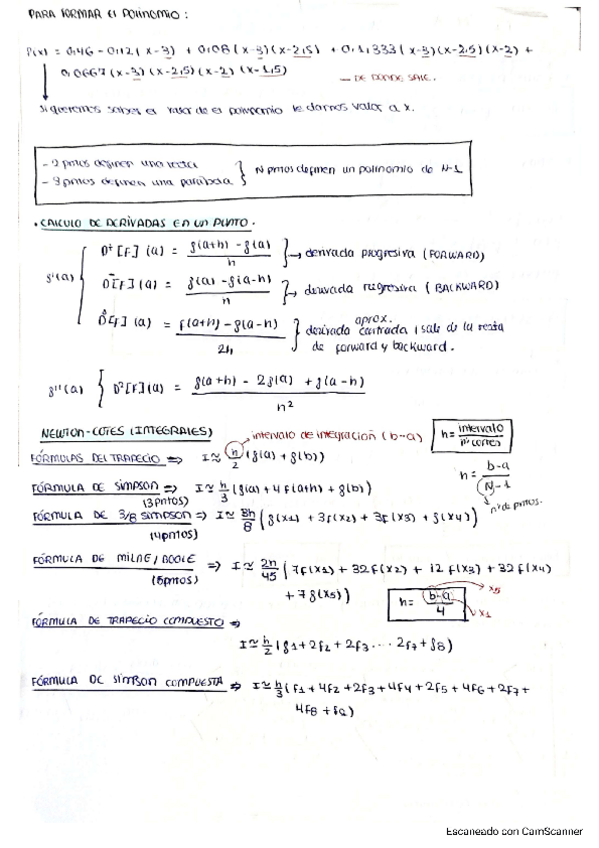 PARA FORMAR El POLINOMIO:
P(x) = 0,46 - 0,12(x-3) + 0,08(x-3)(x-2,5) + 0,1,333(x-3)(x-2,5)(x-2) +
0,0667(x-3)(x-2,5)(x-2)(x-1,5)
— DE DONDE SALE.
Si queremos saber el valor de el polinomio le damos valor a x.
- 2 pntos definen una recta
- 3 pntos definen una parábola
N pntos definen un polinomio de N-1
• CALCULO DE DERIVADAS EN UN PUNTO.
f'(a)
D⁺[F](a) = f(a+h) - f(a) / h → derivada progresiva (FORWARD)
D⁻[F](a) = f(a) - f(a-h) / h → derivada regresiva (BACKWARD)
D[F](a) = f(a+h) - f(a-h) / 2h
aprox.
derivada centrada (sale de la resta
de forward y backward.
f''(a) { D²[F](a) = f(a+h) - 2f(a) + f(a-h) / h²
NEWTON-COTES (INTEGRALES)
intervalo de integración (b-a)
h = intervalo / nº cortes
FÓRMULAS DEL TRAPECIO ⇒ I ≃ h/2 (f(a) + f(b))
h = b-a / N-1
nº de pntos.
FÓRMULA DE SIMPSON ⇒ I ≃ h/3 (f(a) + 4f(a+h) + f(b))
(3 pntos)
FÓRMULA DE 3/8 SIMPSON ⇒ I ≃ 3h/8 (f(x1) + 3f(x2) + 3f(x3) + f(x4))
(4 pntos)
FÓRMULA DE MILNE/BOOLE ⇒ I ≃ 2h/45 (7f(x1) + 32f(x2) + 12f(x3) + 32f(x4)
(5 pntos)
+ 7f(x5))
h = b-a / 4
x5
x1
FÓRMULA DE TRAPECIO COMPUESTO ⇒
I ≃ h/2 (f1 + 2f2 + 2f3 ... 2f7 + f8)
FÓRMULA DE SIMPSON COMPUESTA ⇒ I ≃ h/3 (f1 + 4f2 + 2f3 + 4f4 + 2f5 + 4f6 + 2f7 +
4f8 + f9)
Escaneado con CamScanner